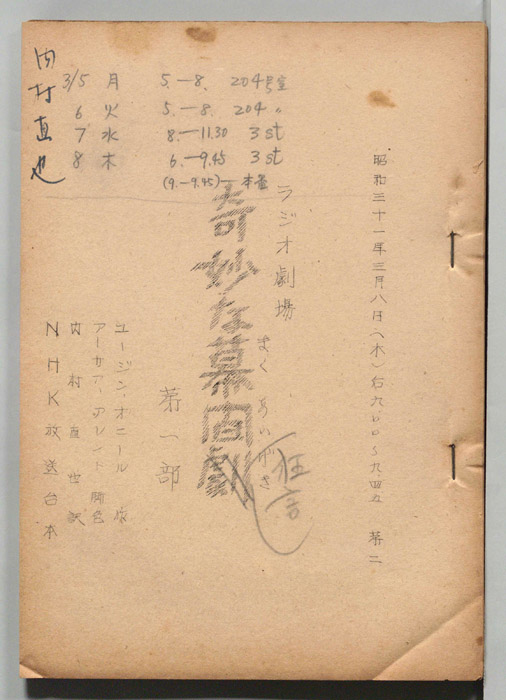 内村直也
3/5 月 5.—8. 204号室
6 火 5.—8. 204 〃
7 水 8.—11.30 3st
8 木 6.—9.45 3st
(9.—9.45)—本番
昭和三十一年三月八日(木)后九、〇〇〜九、四五 第二
ラジオ劇場
奇妙な幕間劇
まくあいげき
狂言
第一部
ユージン・オニール 作
アーサア・アレイト 脚色
内村直也 訳
NHK放送台本